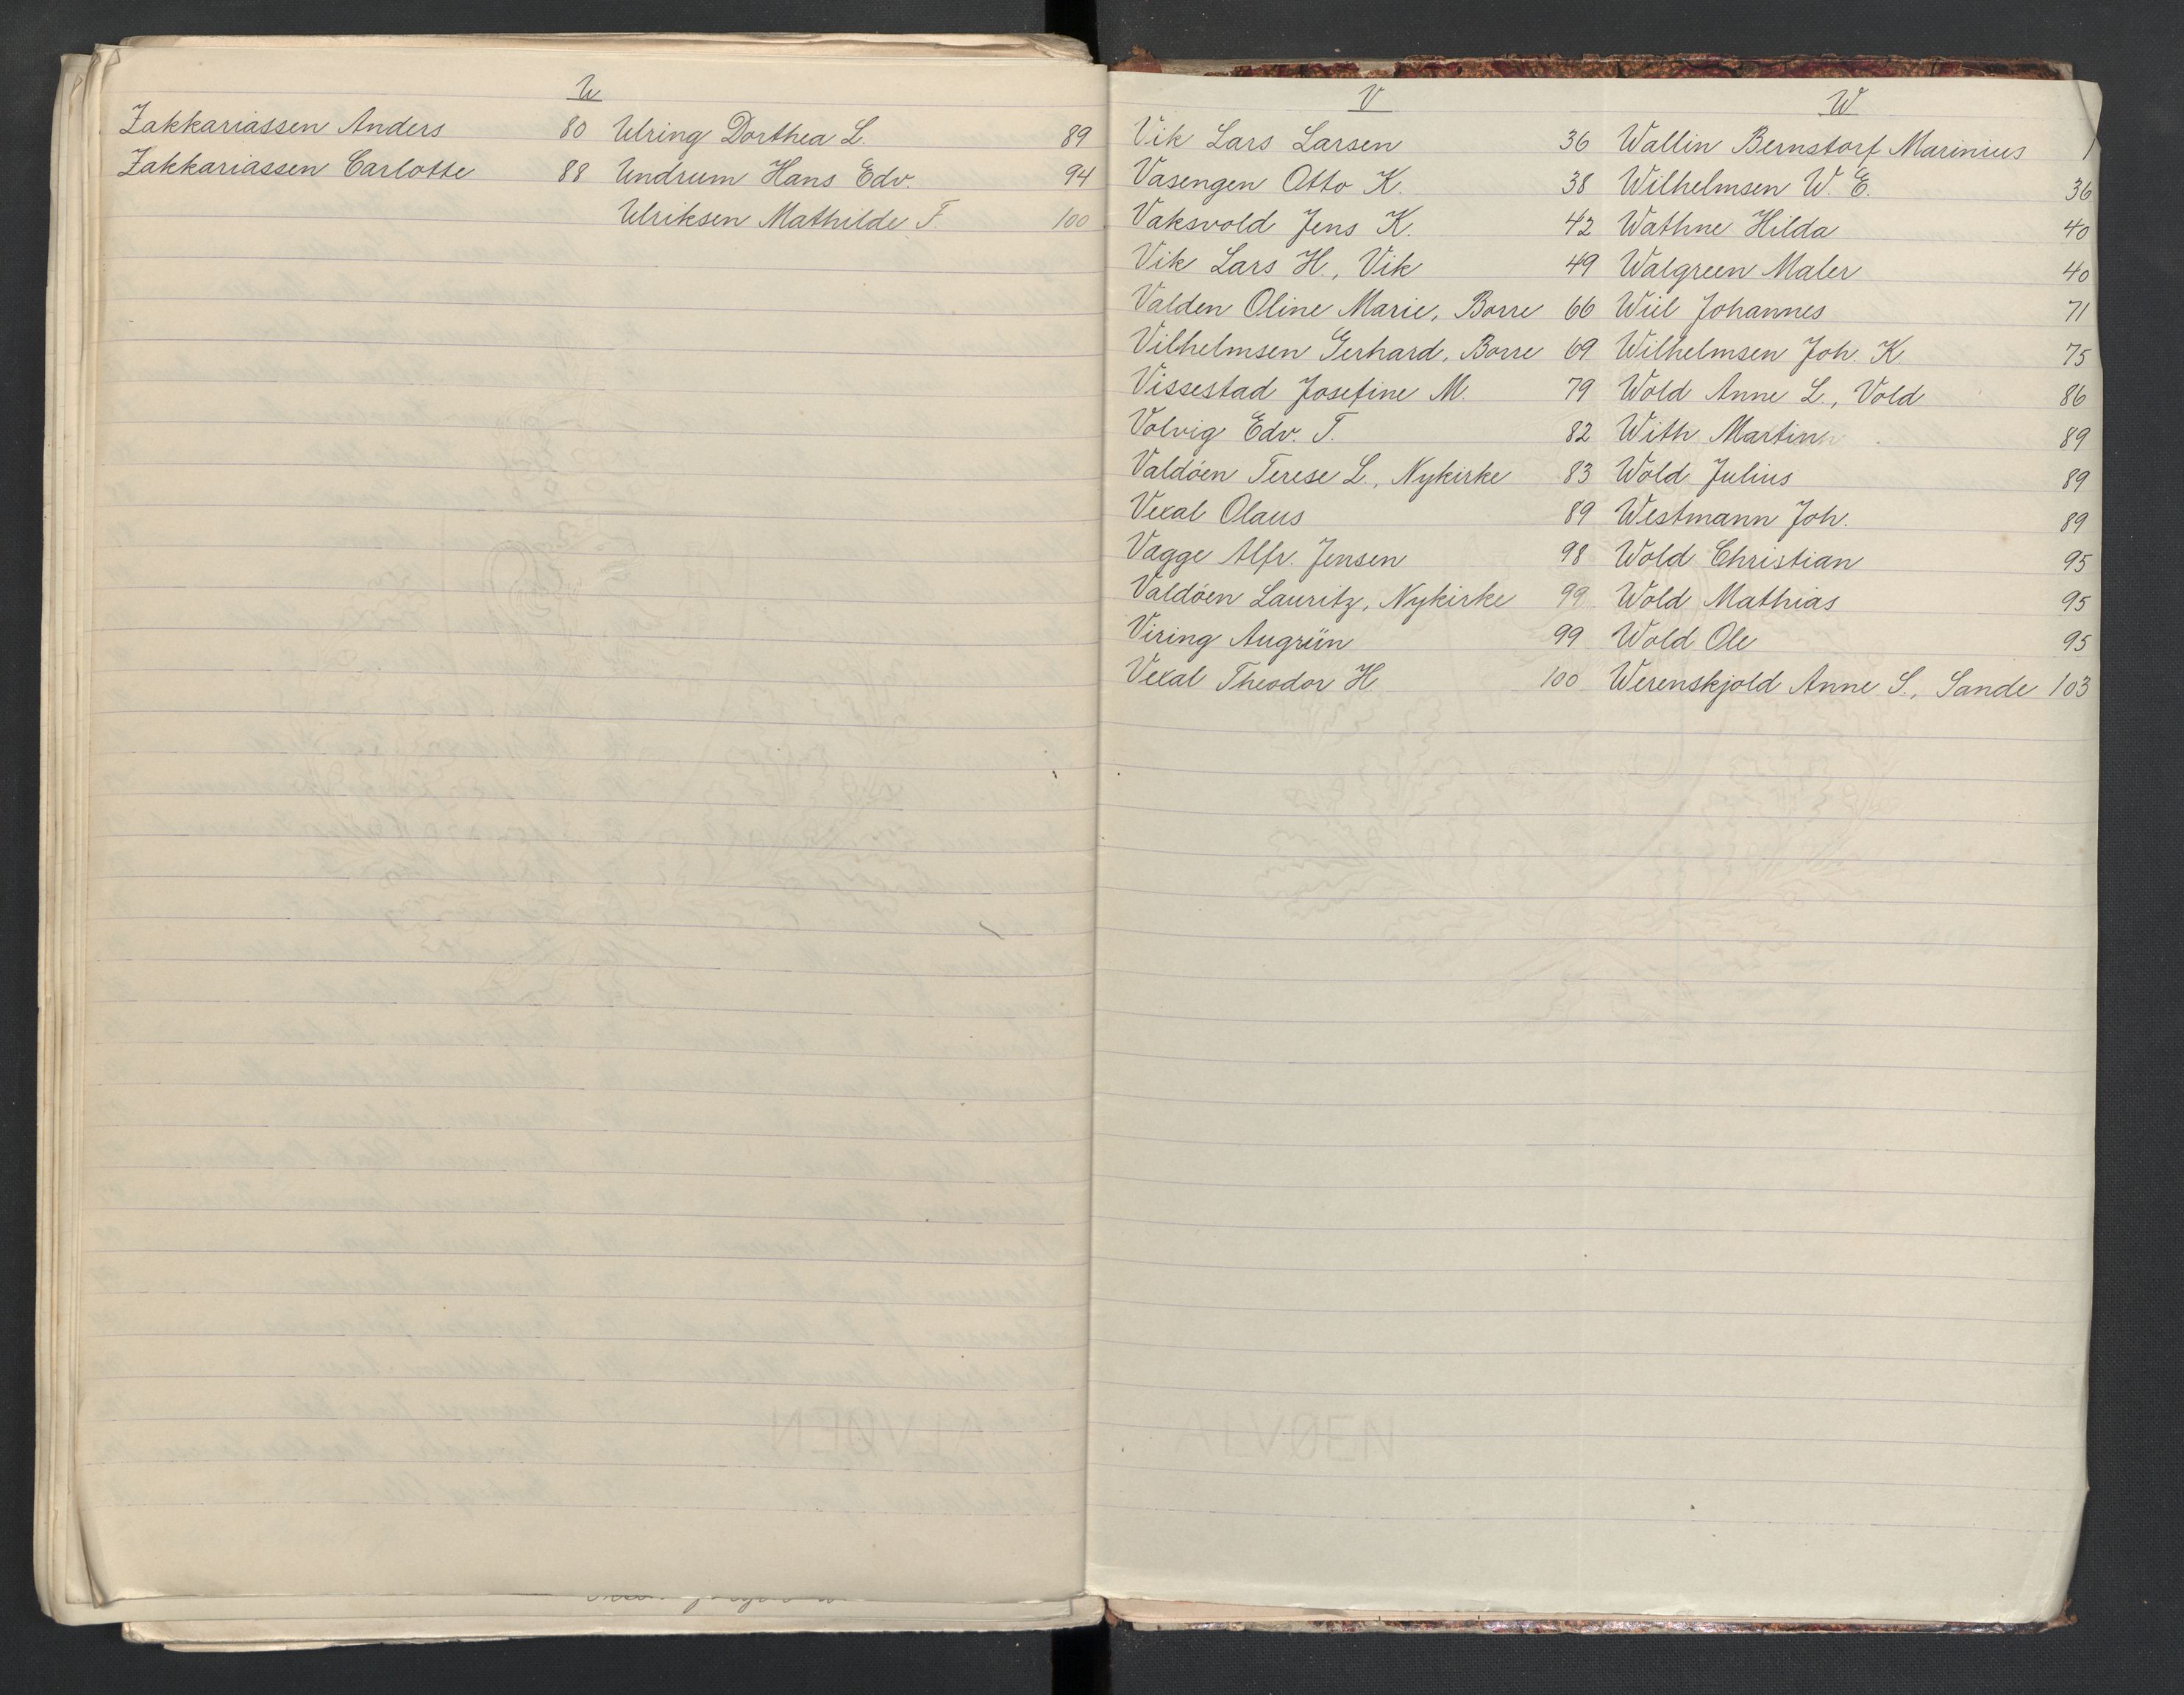 U
Zakkariassen Anders 80 Ulring Dorthea L. 89
Zakkariassen Carlotte 88 Undrum Hans Edv. 94
Ulriksen Mathilde F. 100
V W
Vik Lars Larsen 36 Wallin Bernstorf Marinius 1
Vasengen Otto K. 38 Wilhelmsen W. E. 36
Vaksvold Jens K. 42 Wathne Hilda 40
Vik Lars H., Vik 49 Walgreen Maler 40
Valden Oline Marie, Borre 66 Wiel Johannes 71
Vilhelmsen Gerhard, Borre 69 Wilhelmsen Joh. K. 75
Vissestad Josefine M. 79 Wold Anne L., Vold 86
Volvig Edv. T. 82 With Martin 89
Valdöen Terese L., Nykirke 83 Wold Julius 89
Vexal Olaus 89 Westmann Joh. 89
Vagge Alfr. Jensen 98 Wold Christian 95
Valdöen Lauritz, Nykirke 99 Wold Mathias 95
Viring Augrün 99 Wold Ole 95
Vexal Theodor H 100 Werenskjold Anne S., Sande 103
ALVØEN
ALVØEN